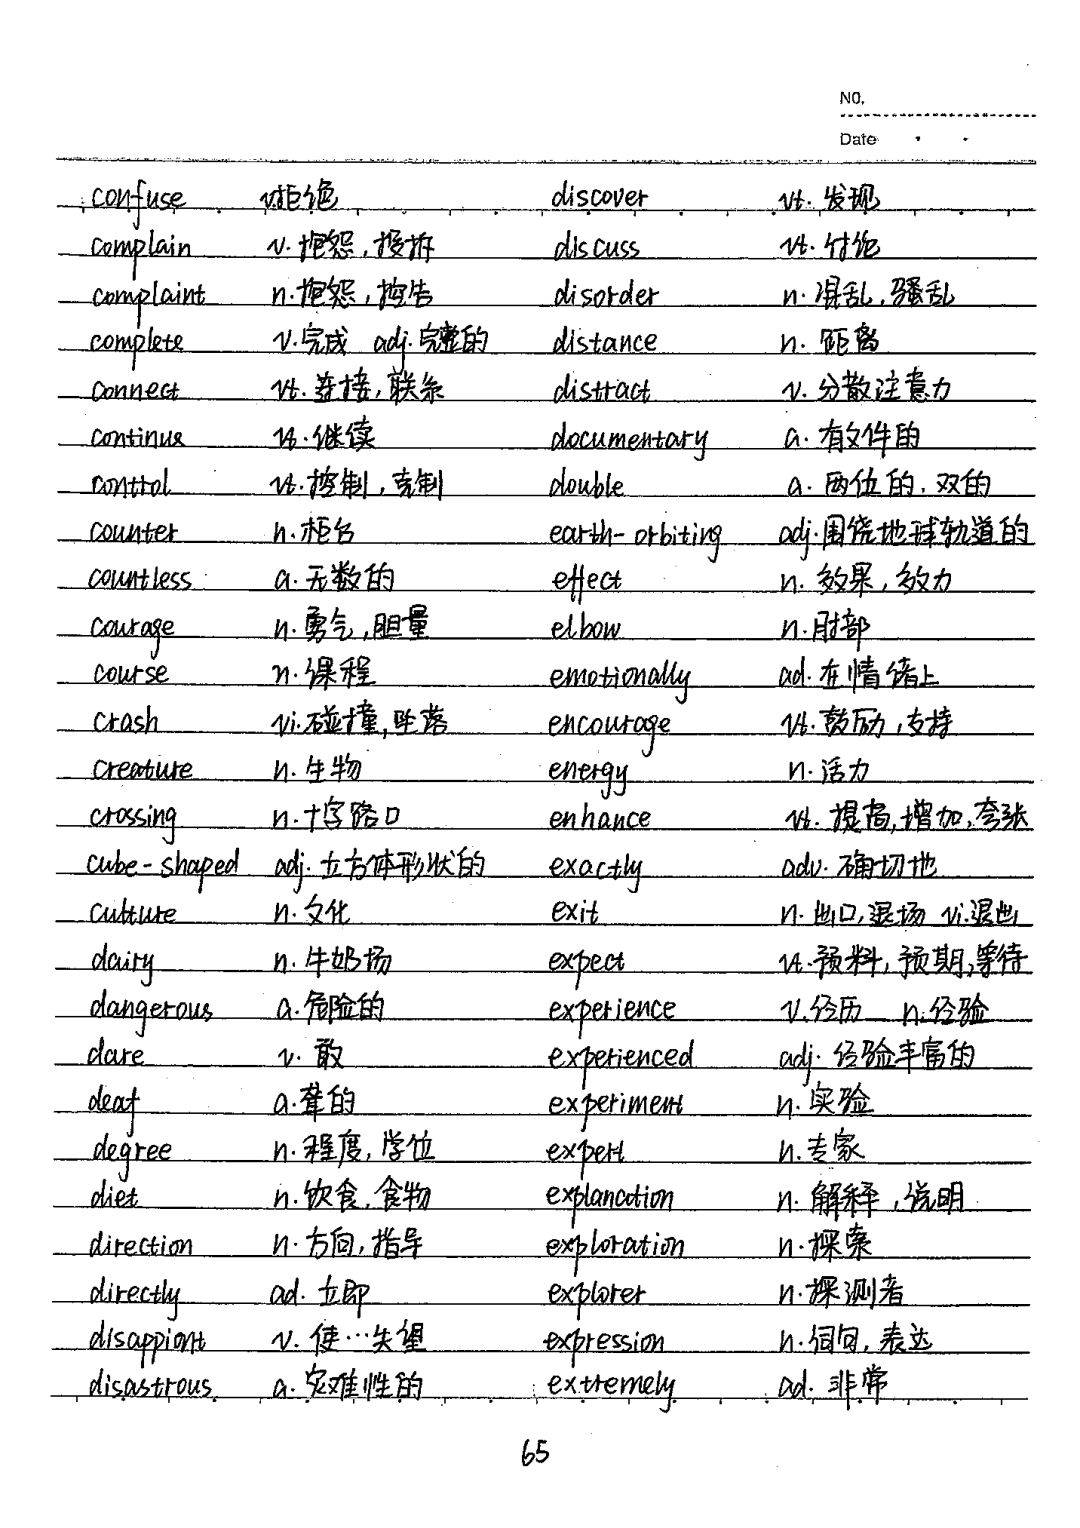 NO.
Date
confuse v.拒绝 discover vt.发现
complain v.抱怨,投拆 discuss vt.讨论
complaint n.抱怨,控告 disorder n.混乱,骚乱
complete v.完成 adj.完整的 distance n.距离
connect vt.连接,联系 distract v.分散注意力
continue vt.继续 documentary a.有文件的
control vt.控制,克制 double a.两位的.双的
counter n.柜台 earth-orbiting adj.围绕地球轨道的
countless a.无数的 effect n.效果,效力
courage n.勇气,胆量 elbow n.肘部
course n.课程 emotionally ad.在情绪上
crash vi.碰撞,坠落 encourage vt.鼓励,支持
creature n.生物 energy n.活力
crossing n.十字路口 enhance vt.提高,增加,夸张
cube-shaped adj.立方体形状的 exactly adv.确切地
culture n.文化 exit n.出口,退场 vi.退出
dairy n.牛奶场 expect vt.预料,预期,等待
dangerous a.危险的 experience v.经历 n.经验
dare v.敢 experienced adj.经验丰富的
deaf a.聋的 experiment n.实验
degree n.程度,学位 expert n.专家
diet n.饮食,食物 explanation n.解释,说明
direction n.方向,指导 exploration n.探索
directly ad.立即 explorer n.探测者
disappiont v.使…失望 expression n.词句,表达
disastrous a.灾难性的 extremely ad.非常
65